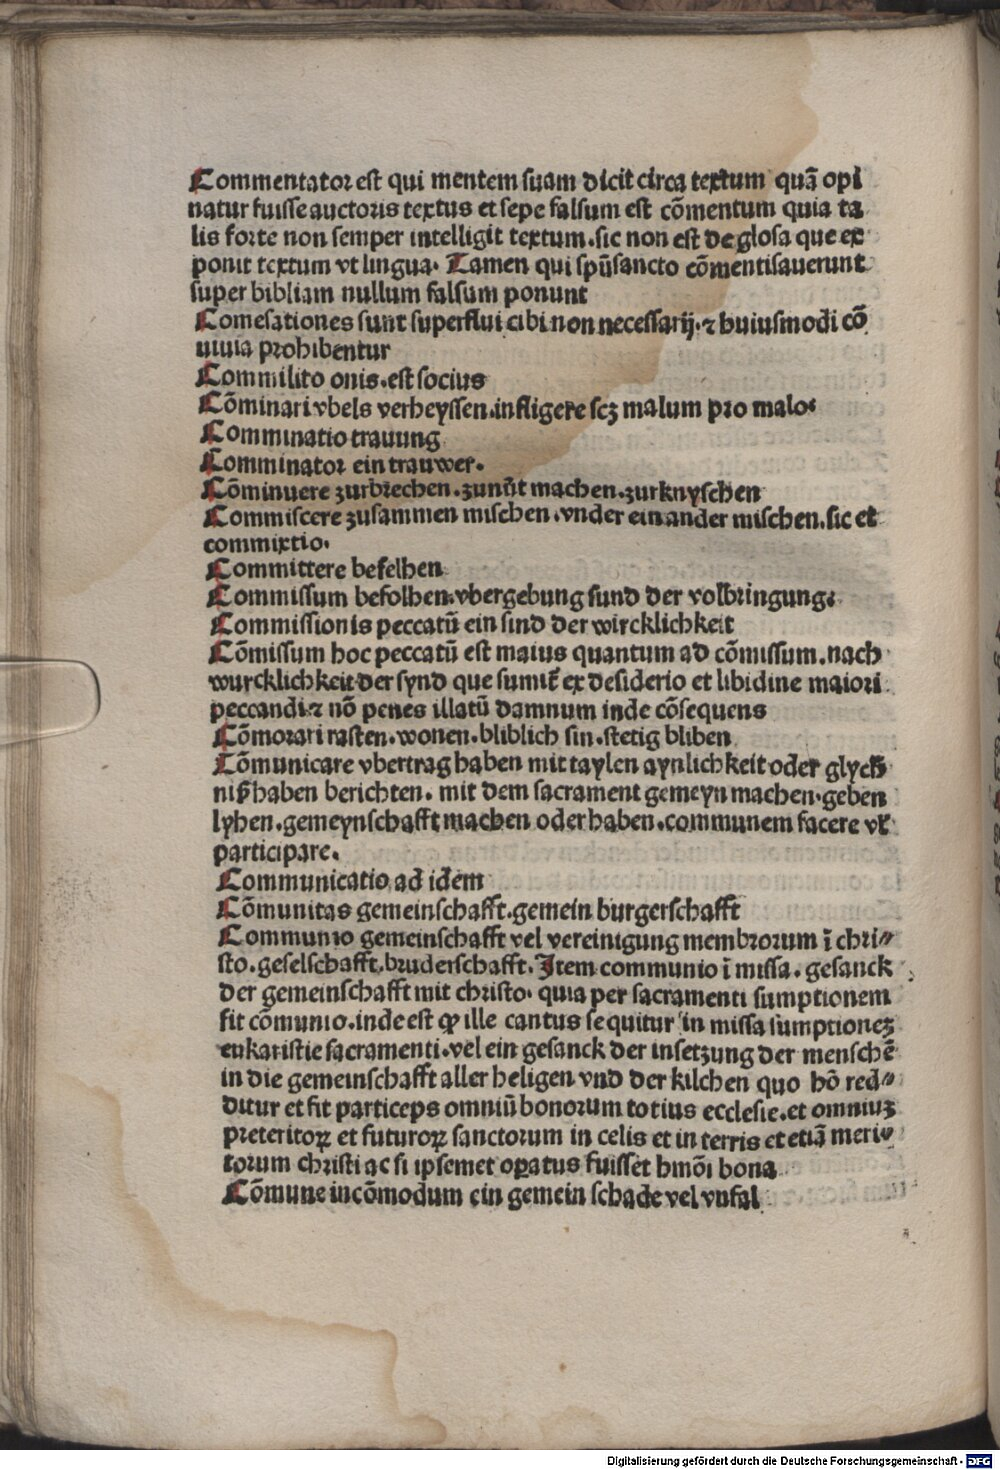 Commentator est qui mentem suam dicit circa textum quā opi
natur fuisse auctoris textus et sepe falsum est cōmentum quia ta
lis forte non semper intelligit textum. sic non est de glosa que ex
ponit textum vt lingua. Tamen qui spūsancto cōmentisauerunt
super bibliam nullum falsum ponunt
Comesationes sunt superflui cibi non necessarij. ⁊ huiusmodi cō
uiuia prohibentur
Commilito onis. est socius
Cōminari vbels verheyssen. infligere scꝫ malum pro malo.
Comminatio trauung
Comminator ein trauwer.
Cōminuere zurbrechen. zunūt machen. zurknyschen
Commiscere zusammen mischen. vnder ein ander mischen. sic et
commixtio.
Committere befelhen
Commissum befolhen. vbergebung sund der volbringung.
Commissionis peccatū ein sind der wircklichkeit
Cōmissum hoc peccatū est maius quantum ad cōmissum. nach
wurcklichkeit der synd que sumit̄ ex desiderio et libidine maiori
peccandi. ⁊ nō penes illatū damnum inde cōsequens
Cōmorari rasten. wonen. bliblich sin. stetig bliben
Cōmunicare vbertrag haben mit taylen aynlichkeit oder glych
niß haben berichten. mit dem sacrament gemeyn machen. geben
lyhen. gemeynschafft machen oder haben. communem facere vl̄
participare.
Communicatio ad idem
Cōmunitas gemeinschafft. gemein burgerschafft
Communio gemeinschafft vel vereinigung membrorum ī chri⸗
sto. geselschafft, bruderschafft. Item communio ī missa. gesanck
der gemeinschafft mit christo. quia per sacramenti sumptionem
fit cōmunio. inde est ꝙ ille cantus sequitur in missa sumptioneꝫ
eukaristie sacramenti. vel ein gesanck der insetzung der menschē
in die gemeinschafft aller heligen vnd der kilchen quo hō red⸗
ditur et fit particeps omniū bonorum totius ecclesie. et omniuꝫ
preteritoꝝ et futuroꝝ sanctorum in celis et in terris et etiā meri⸗
torum christi ac si ipsemet oꝑatus fuisset hmōi bona
Cōmune incōmodum ein gemein schade vel vnfal
Digitalisierung gefördert durch die Deutsche Forschungsgemeinschaft - DFG